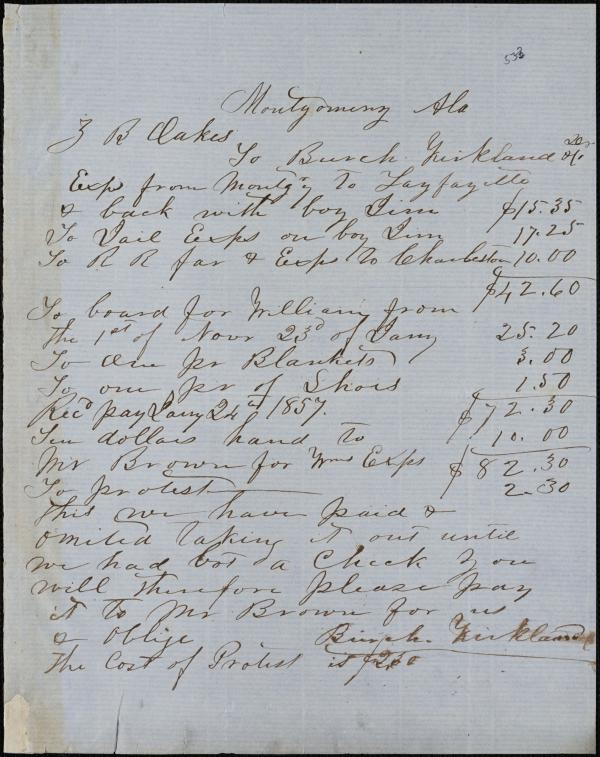 533
Montgomery Ala
Z B Oakes
To Burch. Kirkland & Co
Exp from Montgy to Layfayette
& back with boy Jim $15.35
To Jail Exps on boy Jim 17.25
To R R far & Exps to Charleston 10.00
$42.60
To board for William from
the 1st of Novr 23d of Jany 25.20
To One pr Blankets 3.00
To one pr of Shoes 1.50
Recd pay Jany 24th 1857. $72.30
Ten dollars hand to 10.00
Mr Brown for Wms Exps $82.30
To protest 2.30
This we have paid &
omited taking it out until
we had bot a Check you
will therefore please pay
it to Mr Brown for us
& Oblige Burch. Kirkland
The Cost of Protest is $2.30